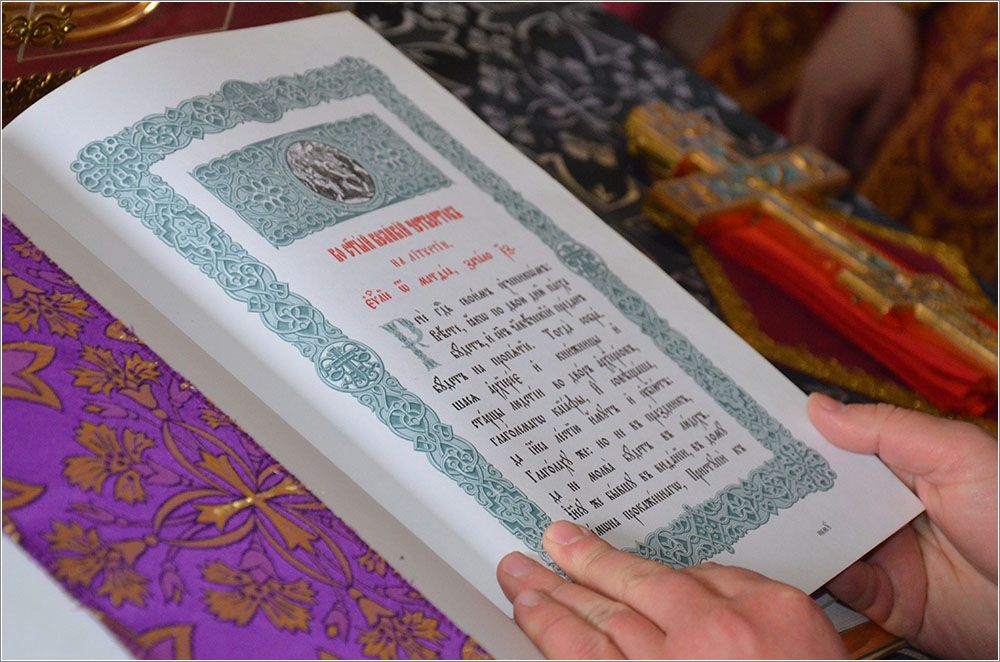 Во ст҃ы́й вели́кїй четверто́къ
на лїтꙋргі́и,
є҆ѵⷢ҇лїе ѿ матѳе́а, зача́ло р҃з
Речѐ гдⷭ҇ь свои̑мъ ᲂу҆ченикѡ́мъ:
вѣ́сте, ꙗ҆́кѡ по двою̀ дню̑ па́сха
бꙋ́детъ, и҆ сн҃ъ чл҃вѣ́ческїй пре́данъ
бꙋ́детъ на пропѧ́тїе. Тогда̀ собра́-
шасѧ а҆рхїере́є и҆ кни́жницы и҆
ста́рцы людсті́и во дво́ръ а҆рхїере́овъ,
глаго́лемагѡ каїа́фы, И҆ совѣща́ша,
да і҆и҃са ле́стїю и҆́мꙋтъ и҆ ᲂу҆бїю́тъ.
Глаго́лахꙋ же: но не въ пра́здникъ,
да не молва̀ бꙋ́детъ въ лю́дехъ.
І҆и҃сꙋ же бы́вшꙋ въ виѳа́нїи, въ домꙋ̀
сі́мѡна прокаже́ннагѡ, Пристꙋпѝ къ